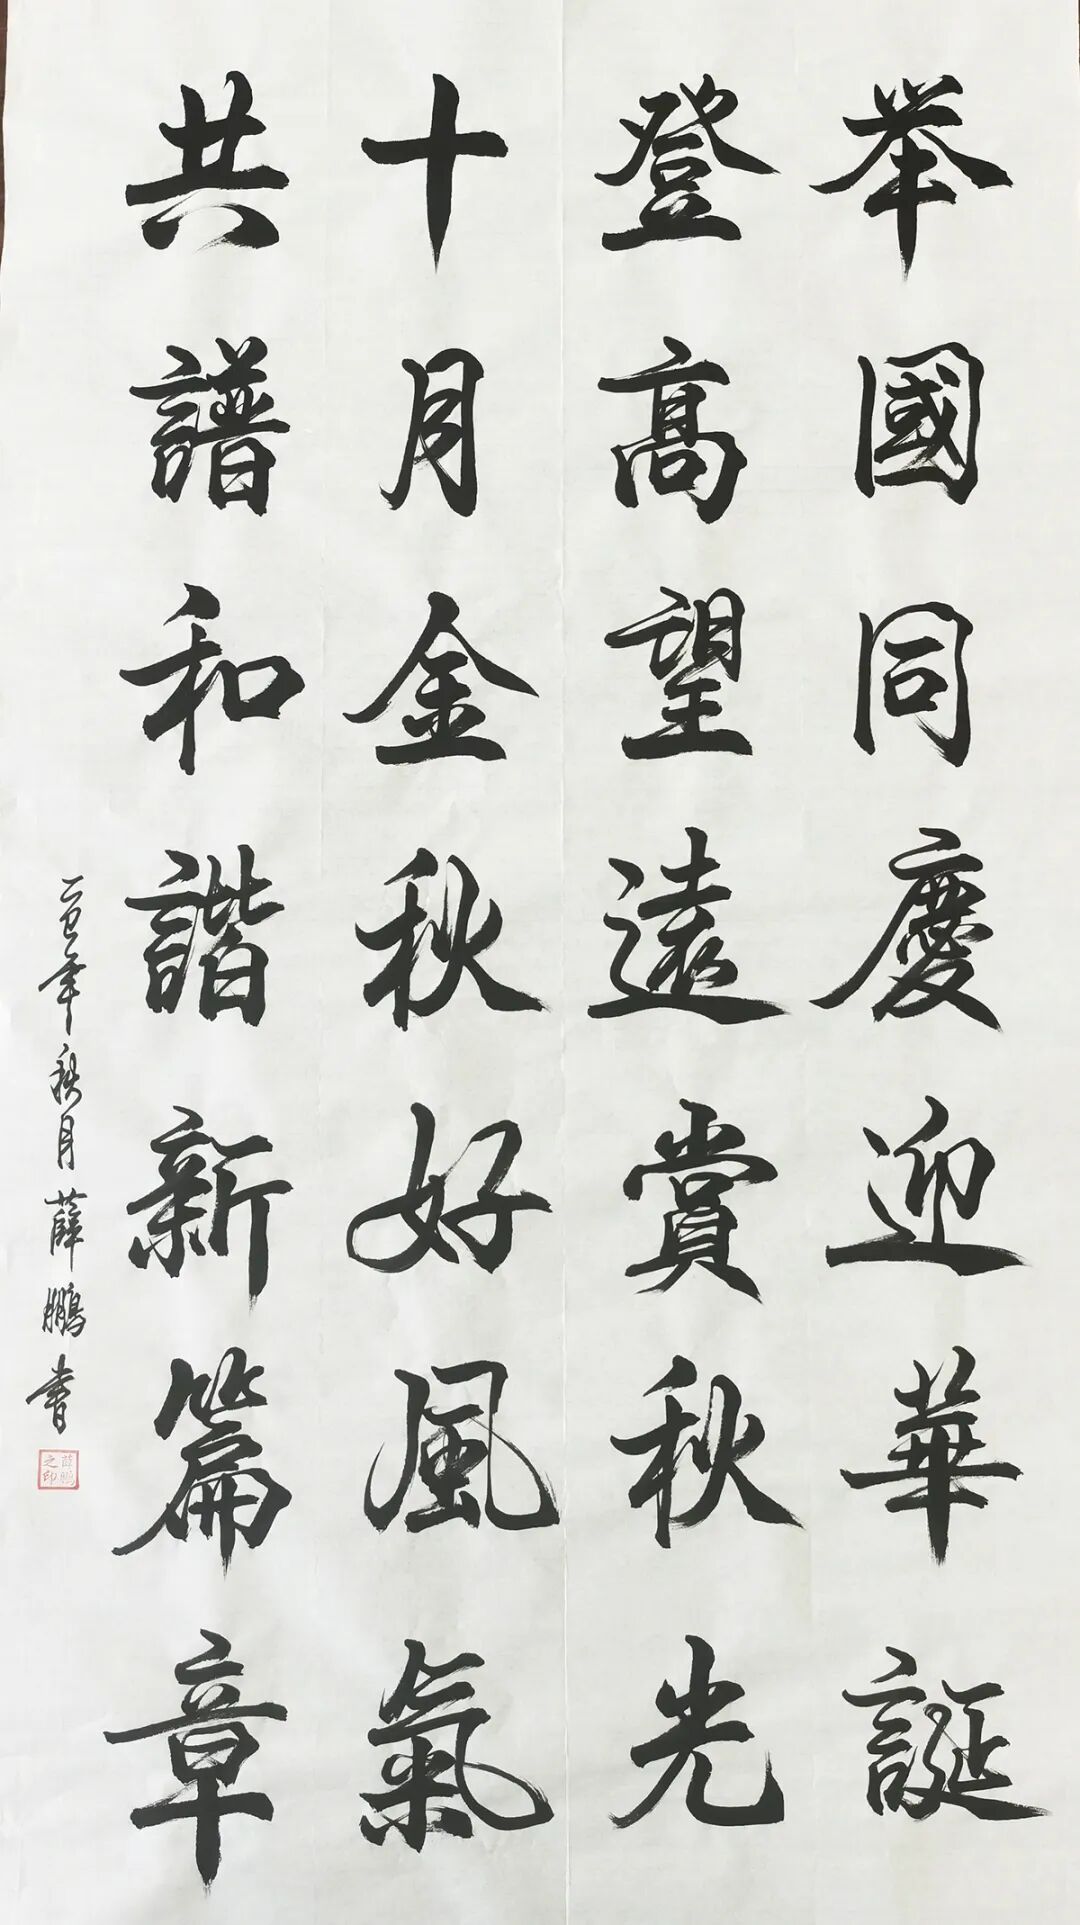 举國同慶迎華誕
登高望遠賞秋光
十月金秋好風氣
共譜和諧新篇章
乙巳年秋月薛鵬書
薛鵬之印